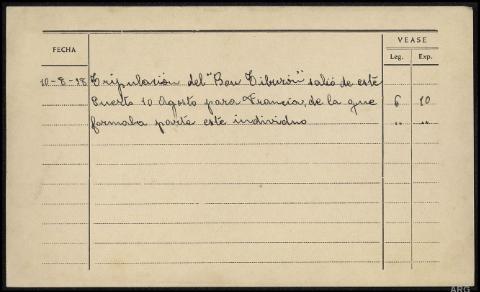 VEASE
FECHA
Leg. Exp.
10-8-38 Tripulación del "Bou Tiburón" salió de este
Puerto 10 Agosto para Francia, de la que 6 10
formaba parte este individuo " "
ARG